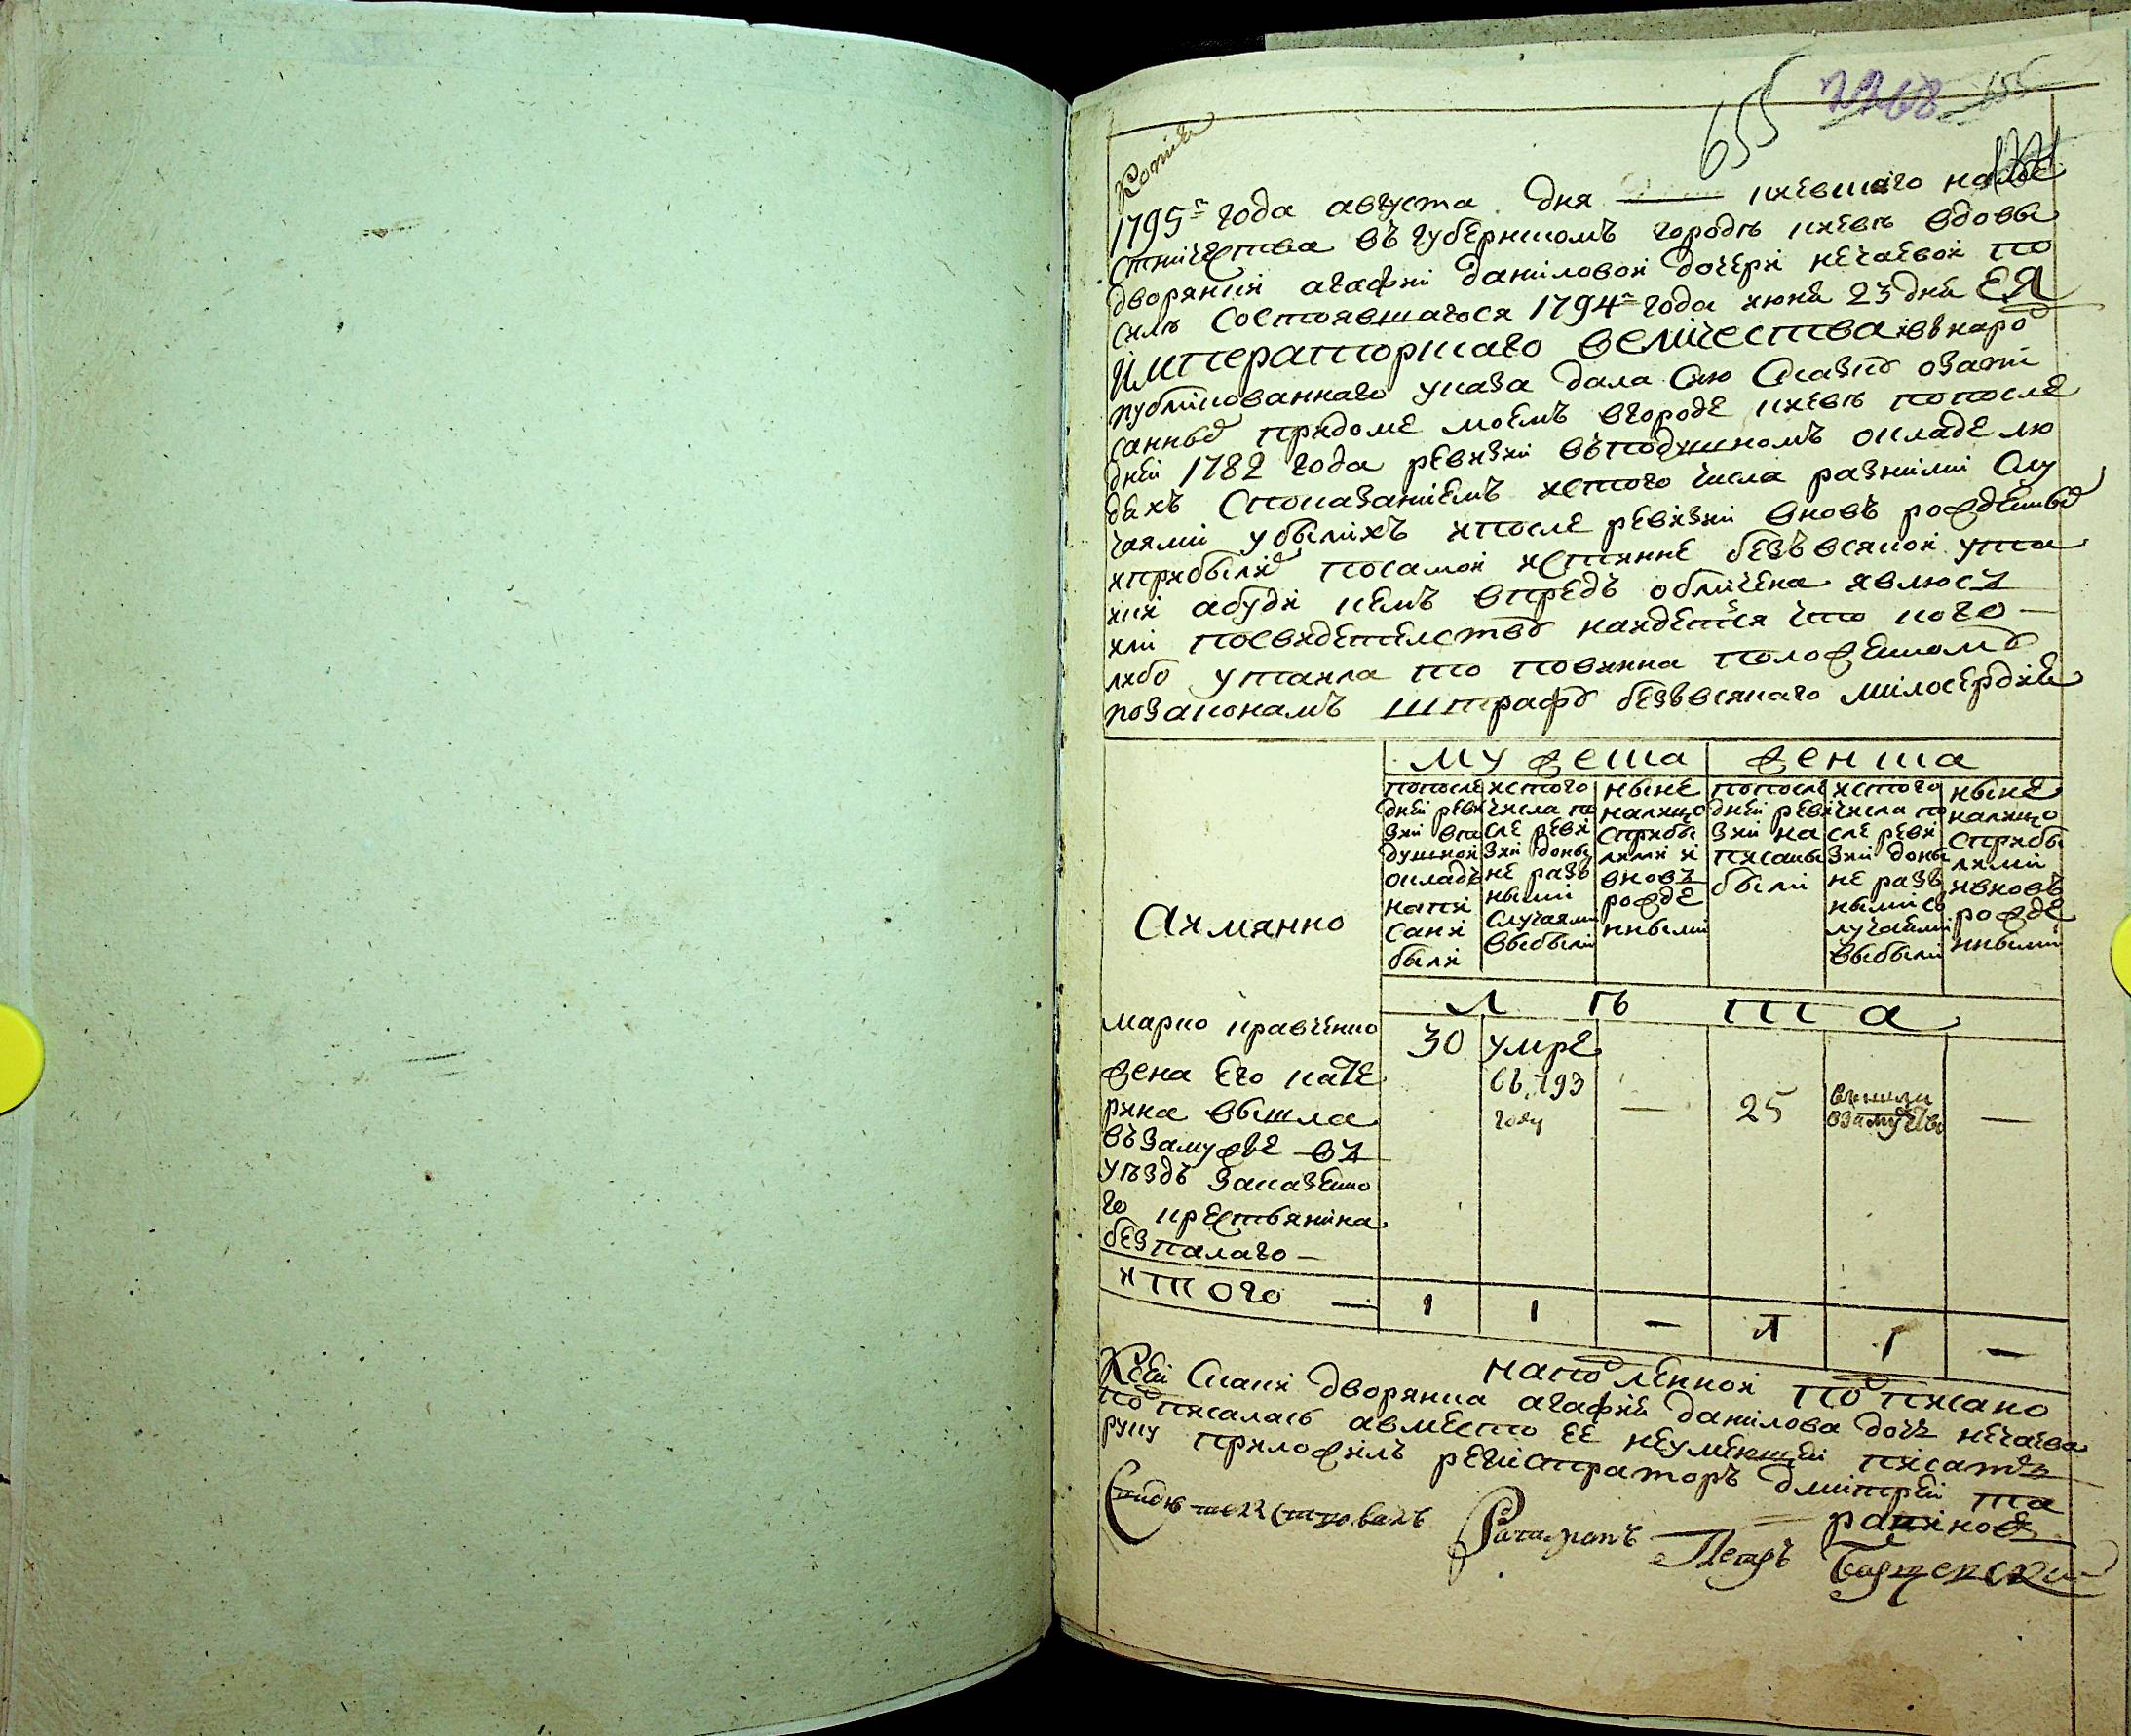 Копиа
655
1795г года августа дня киевшаго наме
стничества въ губернскомъ городѣ киевѣ вдовы
дворянки агафии даниловой дочери нечаевой по
силѣ состоявшагося 1794г года июня 23 дня ЕЯ
императорскаго величества въ народ
публикованнаго указа дала сию сказку о запи
санныхъ при доме моемъ в городе киевѣ по после
дней 1782 года ревизии въ подушномъ окладе лю
дяхъ с показаниемъ из того числа разними слу
чаями убылихъ и после ревизии вновь рожденныхъ
и прибылихъ по самой истинне безъ всякой утаи
ки а буди кемъ впредь обличена явлюсь
или по свидетелству найдется что кого
либо утаила то повинна положенному
по законамъ штрафу безъ всякаго милосердия
мужеска женска
Аименно
по после дней реви зии в по душной окладъ напи сани были
ис того числа по сле реви зии до ны не разъ ными случаями выбыли
ныне налицо с прибы лими и вновь рожде нными
по после дней реви зии на писаны были
ис того числа по сле реви зии до ны не разъ ными сь лучаями выбыли
ныне налицо с прибы лими и вновь рожде нными
л ѣ т а
марко кравченко 30 умре въ 793 году
жена его кате — 25 вышла в замужество —
рина вышла
въ замужье въ
уѣздъ за казенно
го крестьянина
безпалаго —
итого — 1 1 — 1 1 —
на подленной подписано
К сей скаски дворянка агафия данилова дочь нечаева
подписалась а вместо ее неумеющей писать
руку приложилъ регистраторъ дмитрей та
ранинов
Петръ